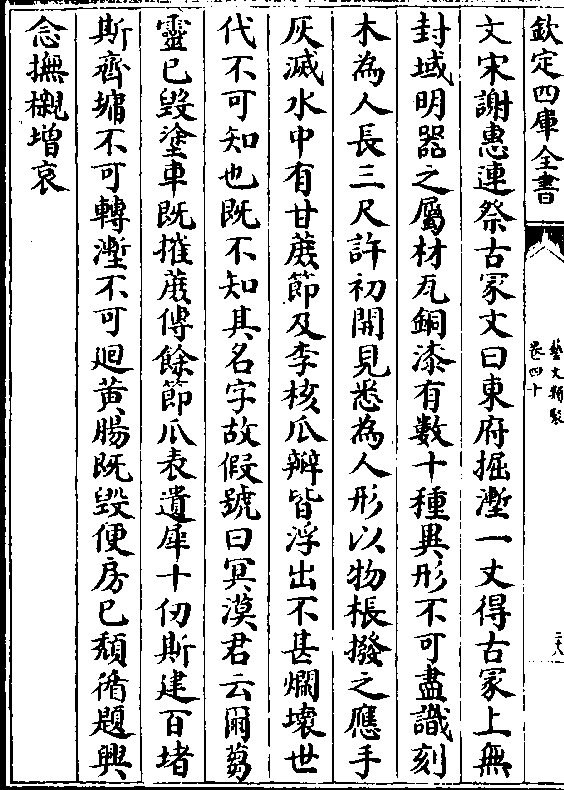 欽定四庫全書
藝文類聚
卷四十
二十八
文宋謝惠連祭古冢文曰東府掘壍一丈得古冢上無
封域明器之屬材瓦銅漆有數十種異形不可盡識刻
木為人長三尺許初開見悉為人形以物棖撥之應手
灰滅水中有甘蔗節及李核瓜瓣皆浮出不甚爛壞世
代不可知也既不知其名字故假號曰冥漠君云爾芻
靈已毀塗車既摧蔗傳餘節瓜表遺犀十仞斯建百堵
斯齊墉不可轉壍不可迴黃腸既毀便房已頹循題興
念撫櫬增哀